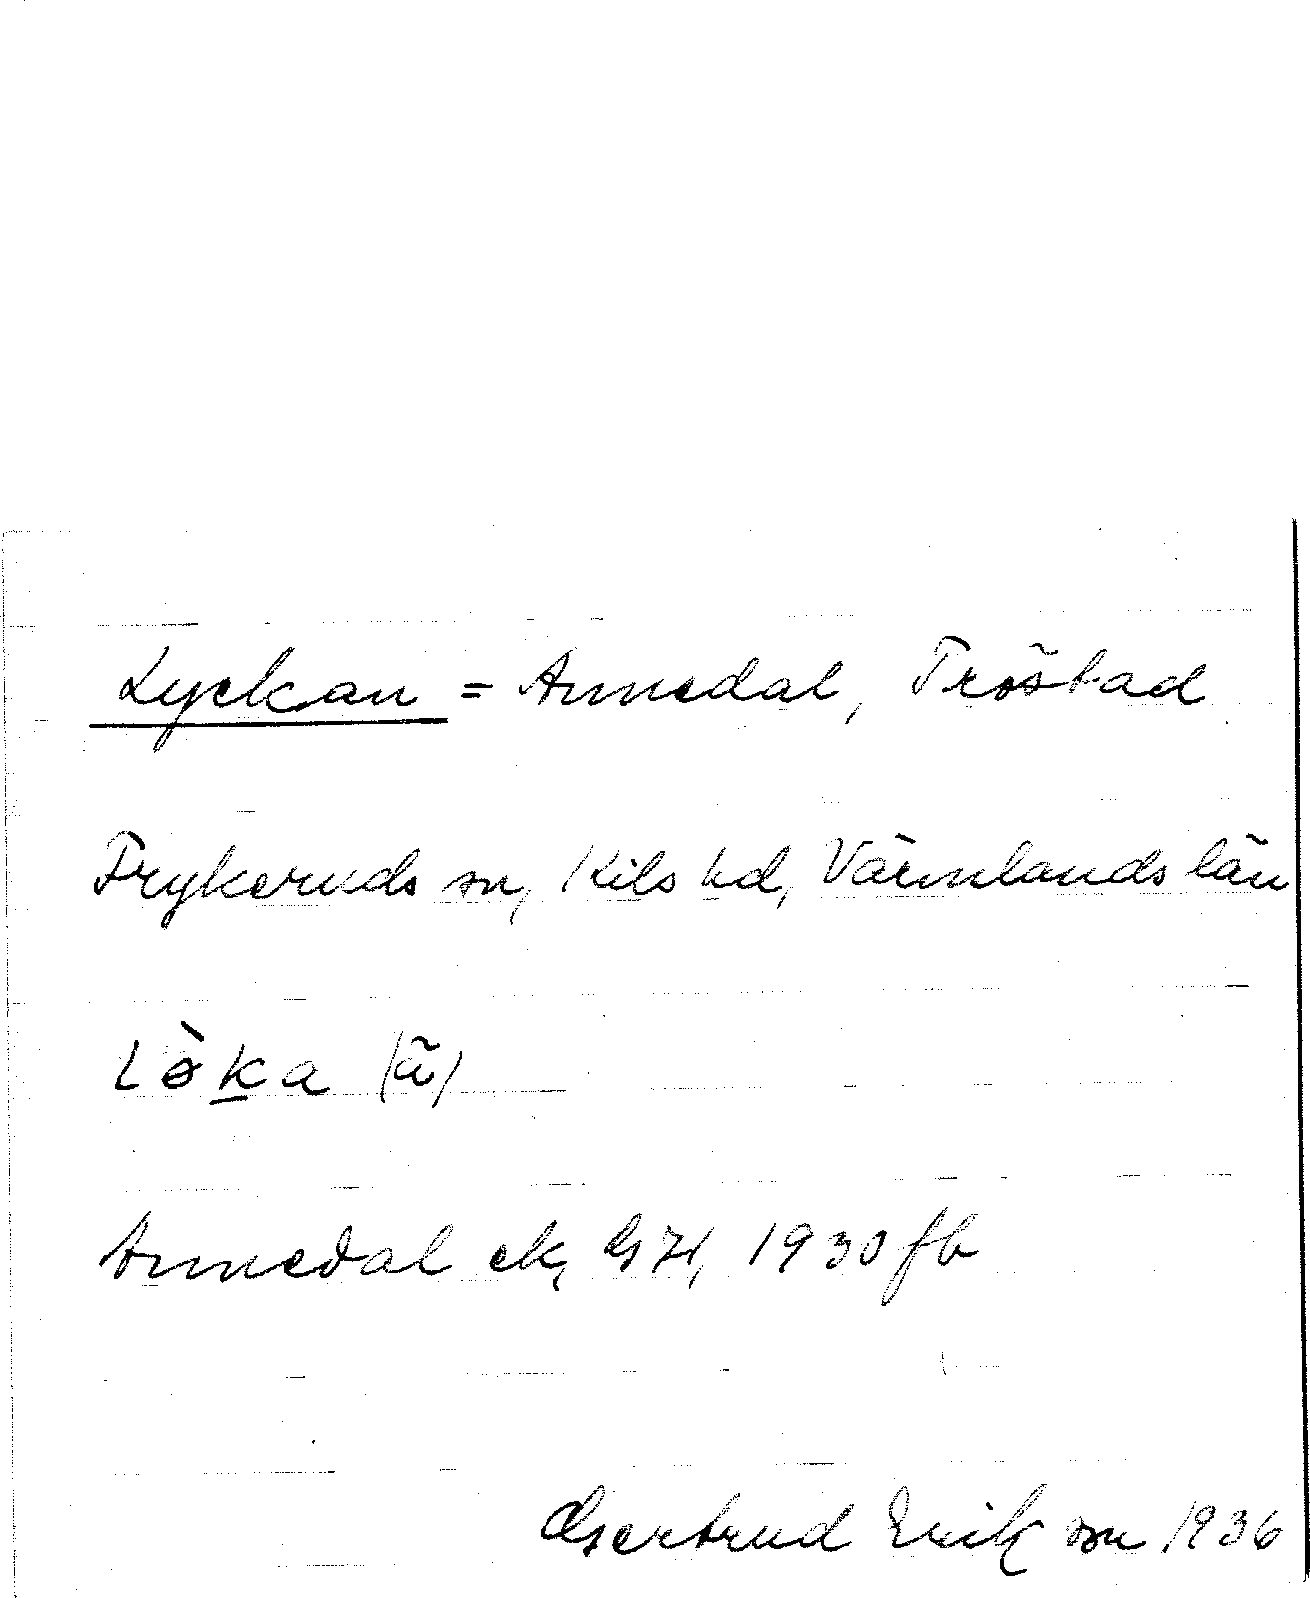 Lyckan = Annedal, Tröstad
Frykeruds sn, Kils hd, Värmlands län
Lòka (ä)
Annedal ek, 1930 fb
Gertrud Erikson 1936